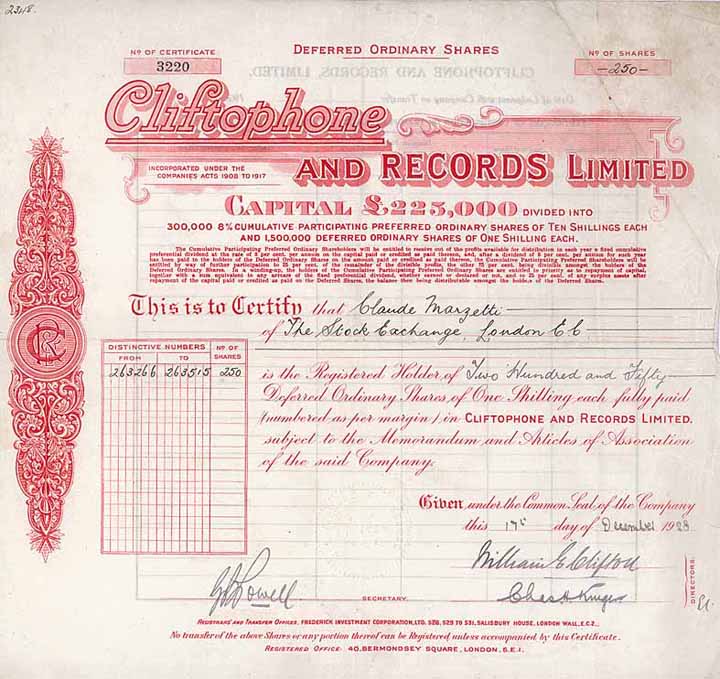 2348.
Nº OF CERTIFICATE
3220
DEFERRED ORDINARY SHARES
Nº OF SHARES
-250-
Cliftophone
AND RECORDS LIMITED
INCORPORATED UNDER THE
COMPANIES ACTS 1908 TO 1917
CAPITAL £225,000 DIVIDED INTO
300,000 8% CUMULATIVE PARTICIPATING PREFERRED ORDINARY SHARES OF TEN SHILLINGS EACH
AND 1,500,000 DEFERRED ORDINARY SHARES OF ONE SHILLING EACH.
The Cumulative Participating Preferred Ordinary Shareholders will be entitled to receive out of the profits available for distribution in each year a fixed cumulative
preferential dividend at the rate of 8 per cent. per annum on the capital paid or credited as paid thereon, and, after a dividend of 8 per cent. per annum for such year
has been paid to the holders of the Deferred Ordinary Shares on the amount paid or credited as paid thereon, the Cumulative Participating Preferred Shareholders will be
entitled by way of further participation to 25 per cent. of the remainder of the divisible profits, the other 75 per cent. being divisible amongst the holders of the
Deferred Ordinary Shares. In a winding-up, the holders of the Cumulative Participating Preferred Ordinary Shares are entitled to priority as to repayment of capital,
together with a sum equivalent to any arrears of the fixed preferential dividend, whether earned or declared or not, and to 25 per cent. of any surplus assets after
repayment of the capital paid or credited as paid on the Deferred Shares, the balance being distributable amongst the holders of the Deferred Shares.
This is to Certify that Claude Marzetti
of The Stock Exchange, London E C
DISTINCTIVE NUMBERS
FROM TO
Nº OF SHARES
263266 263515 250
is the Registered Holder of Two Hundred and Fifty
Deferred Ordinary Shares of One Shilling each fully paid
(numbered as per margin) in CLIFTOPHONE AND RECORDS LIMITED.
subject to the Memorandum and Articles of Association
of the said Company.
CR
Given under the Common Seal of the Company
this 17th day of December 1923
William G Clifton
Chas H Kruger
DIRECTORS.
Powell
SECRETARY.
REGISTRARS AND TRANSFER OFFICES, FREDERICK INVESTMENT CORPORATION, LTD. 528, 529 TO 531, SALISBURY HOUSE, LONDON WALL, E.C.2.
No transfer of the above Shares or any portion thereof can be Registered unless accompanied by this Certificate.
REGISTERED OFFICE: 40, BERMONDSEY SQUARE, LONDON. S.E.1.